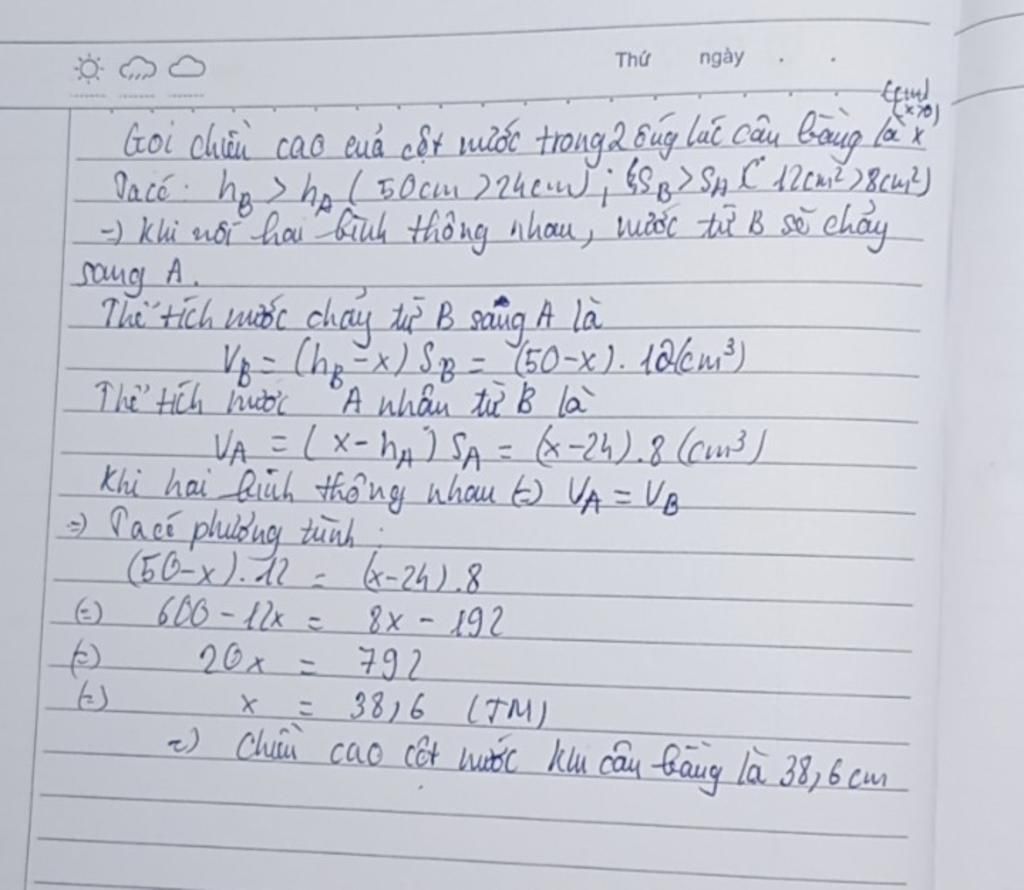 Thứ ngày . .
(cm)
(x>0)
Gọi chiều cao cuả cột nước trong 2 ống lúc cân bằng là x
Ta có: hB > hA (50cm > 24cm) ; SB > SA (12cm² > 8cm²)
=> Khi nối hai bình thông nhau, nước từ B sẽ chảy
sang A.
Thể tích nước chảy từ B sang A là
VB = (hB - x) SB = (50 - x). 12(cm³)
Thể tích nước A nhận từ B là
VA = (x - hA) SA = (x - 24).8 (cm³)
Khi hai bình thông nhau (=) VA = VB
=> Ta có phương trình:
(50-x).12 = (x-24).8
(=) 600 - 12x = 8x - 192
(=) 20x = 792
(=) x = 38,6 (TM)
=> Chiều cao cột nước khi cân bằng là 38,6 cm